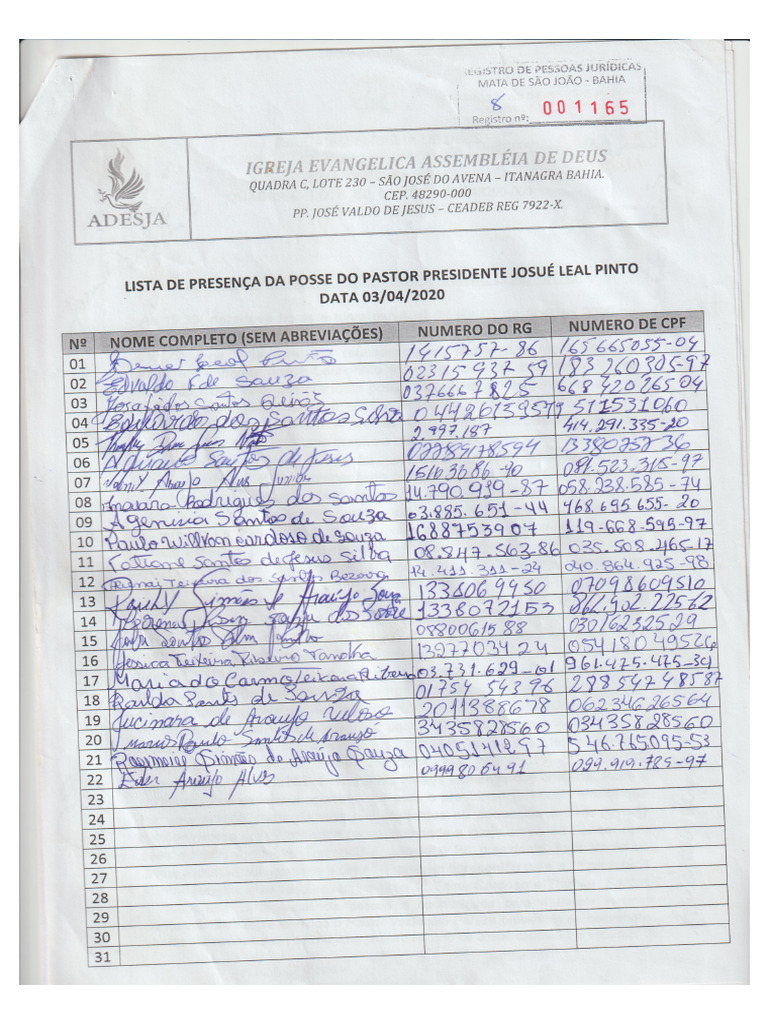 REGISTRO DE PESSOAS JURÍDICAS
MATA DE SÃO JOÃO - BAHIA
8 001165
Registro nº:
ADESJA
IGREJA EVANGELICA ASSEMBLÉIA DE DEUS
QUADRA C, LOTE 230 – SÃO JOSÉ DO AVENA – ITANAGRA BAHIA.
CEP. 48290-000
PP. JOSÉ VALDO DE JESUS – CEADEB REG 7922-X.
LISTA DE PRESENÇA DA POSSE DO PASTOR PRESIDENTE JOSUÉ LEAL PINTO
DATA 03/04/2020
Nº NOME COMPLETO (SEM ABREVIAÇÕES) NUMERO DO RG NUMERO DE CPF
01 Leal Pinto 1415757-86 165665055-04
02 Edvaldo de Souza 02315937 59 183260305-97
03 Santos 0376667825 66842026504
04 dos Santos Silva
05 2.997.187 414.291.335-20
06 Santos de Jesus 02284178594 13380757 36
07 Araujo Alves Junior 081.523.315-97
08 Rodrigues dos Santos 14.790.919-87 058.238.585-74
09 Agenisia Santos de Souza 03.835.651-44 468.695.655-20
10 Paulo Cardoso de Souza 1688753907 119-668-595-97
11 Tatiane Santos de Jesus Silva 08.847.563-86 035.508.465-17
12 Teixeira dos Santos Bezerra 14.411.311-24 040.864.925-98
13 Simões de Araújo Souza 1338069450 07098609510
14 1338072153
15 0880061588 03076232529
16 Jessica Teixeira Ribeiro 1327703424
17 Maria do Carmo Teixeira Ribeiro 961.475.475-34
18 de Souza 01754 54396 28854748587
19 Jucinara de Araujo Veloso 2011388678 06234626564
20 Paulo Santos de Araujo 3435828560 03435828560
21 Simões de Araújo Souza 0405141297 546.715095-53
22 Eder Araujo Alves 0999806491 099.919.725-97
23
24
25
26
27
28
29
30
31